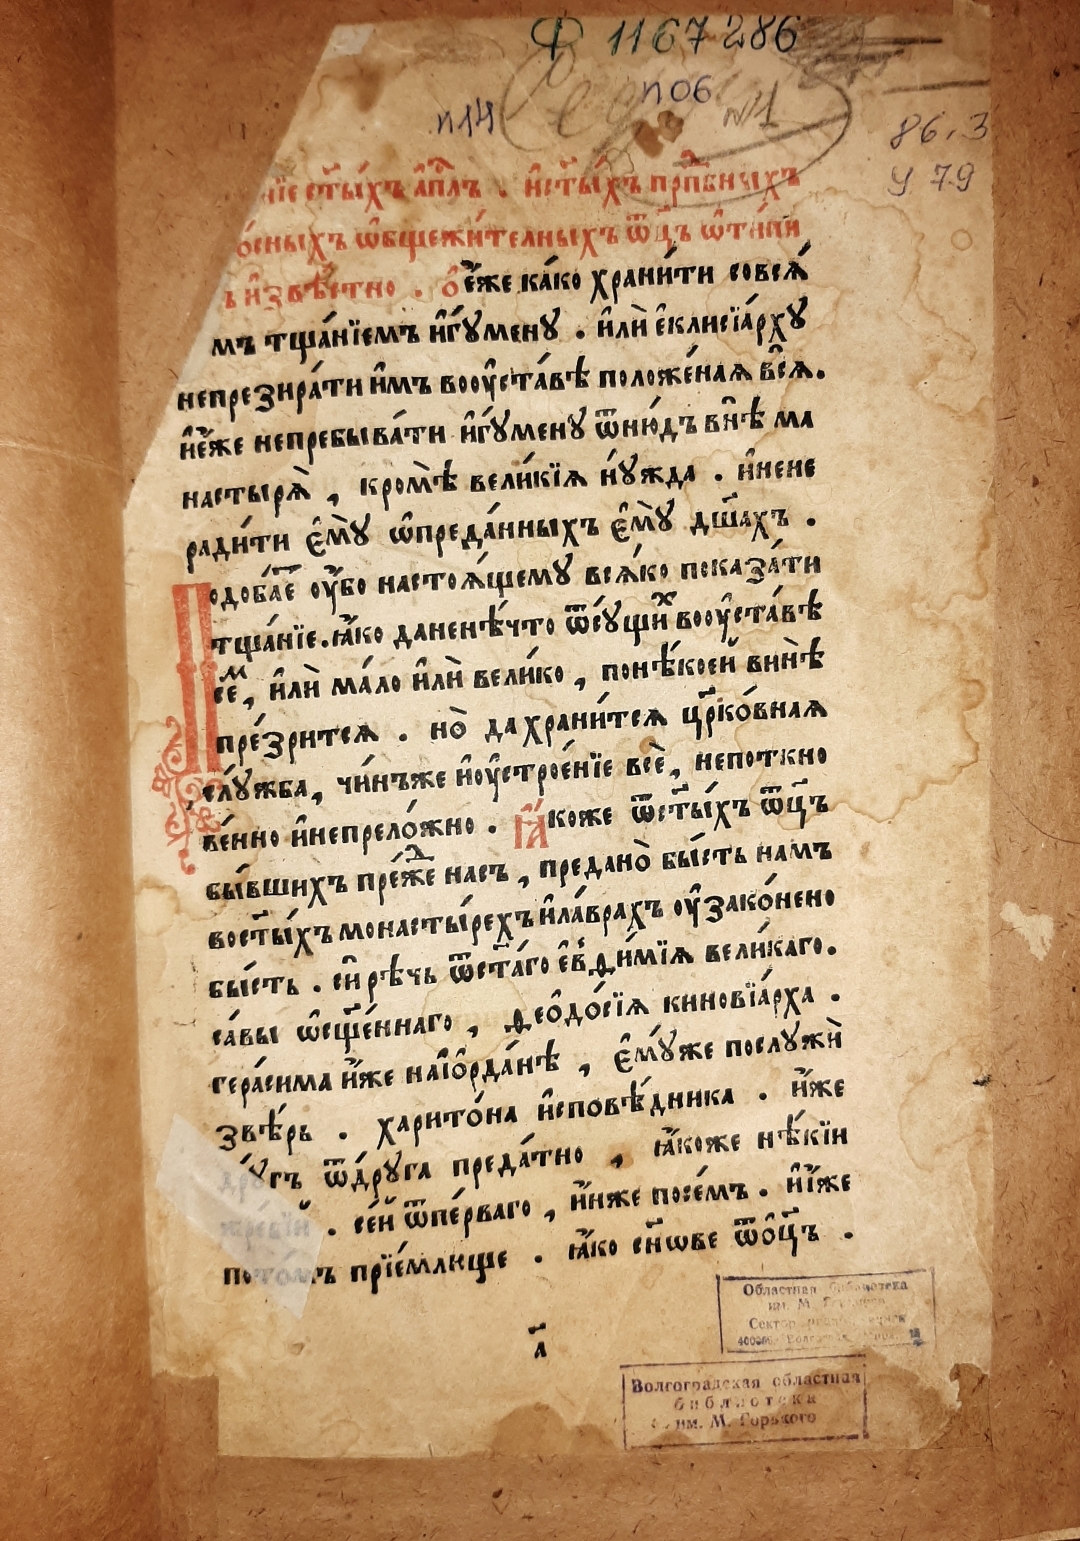 Ф 1167286
п14 п06 №1
86.3
У 79
нїе ст҃ы́хъ а҆пⷭ҇лъ . и҆ст҃ы́хъ прпⷣбныхъ
о́сныхъ ѡ҆бщежи́телныхъ ѿц҃ъ ѡ҆та́ини
ъ и҆звѣ́стно . ѻ҆е́же ка́ко храни́ти совсѧ́
мъ тща́нїемъ и҆гꙋ́менꙋ . и҆лѝ є҆клисїа́рхꙋ
непрезира́ти и҆мъ воꙋ҆ста́вѣ положе́наѧ всѧ̑.
и҆е́же непребыва́ти и҆гꙋ́менꙋ ѿню́дъ внѣ̀ ма
настырѧ̀ , кромѣ̀ вели́кїѧ нꙋ́жда . и҆нене
ради́ти є҆мꙋ̀ ѡ҆преда́нныхъ є҆мꙋ̀ дш҃ахъ .
Подоба́етъ ᲂу҆́бо настоѧ́щемꙋ всѧ́ко показа́ти
тща́нїе.ꙗ҆́ко даненѣ́что ѿсꙋ́щихъ воꙋ҆ста́вѣ
се́мъ, и҆лѝ ма́ло и҆лѝ вели́ко , понѣ́коей винѣ̀
пре́зритсѧ . но̀ да храни́тсѧ цр҃ко́внаѧ
слꙋ́жба, чи́нъже и҆ꙋ҆строе́нїе всѐ, непоткно
ве́нно и҆непрело́жно . Ꙗ҆́коже ѿст҃ы́хъ ѿц҃ъ
бы́вшихъ пре́жде насъ , предано̀ бы́сть намъ
вост҃ы́хъ монасты́рехъ и҆ла́врахъ ᲂу҆зако́нено
бы́сть . сѝ рѣчь ѿст҃а́го є҆вѳи́мїѧ вели́каго.
са́вы ѡ҆сщ҃е́ннаго , ѳео҆до́сїѧ киновїа́рха .
гера́сима и҆́же наїѻ҆рда́нѣ , є҆мꙋ́же послꙋжѝ
звѣ́рь . харито́на и҆сповѣ́дника . и҆́же
дрꙋ́гъ ѿдрꙋга преда́тно , ꙗ҆́коже нѣ́кїи
жре́бїи . се́й ѿпе́рваго , и҆́нже посе́мъ . и҆и҆́же
пото́мъ прїе́млюще . ꙗ҆́ко сн҃ове ѿѻ҆ц҃ъ .
а҃
Областная библиотека
им. М.
Сектор
Волгоградская областная
библиотека
им. М. Горького